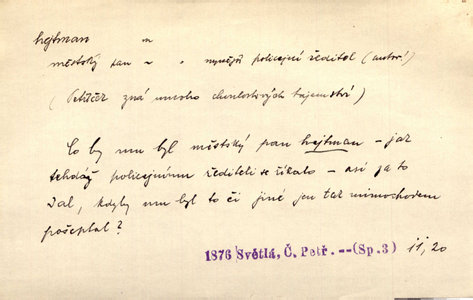 hejtman m
městský pan ~ = nynější policejní ředitel (autor.!)
(Petříčěk zná mnoho choulostivých tajemství)
Co by mu byl městský pan hejtman – jak
tehdáž policejnímu řediteli se říkalo – asi za to
dal, kdyby mu byl to či jiné jen tak mimochodem
pošeptal?
1876 Světlá, Č. Petř. --(Sp.3) II, 20